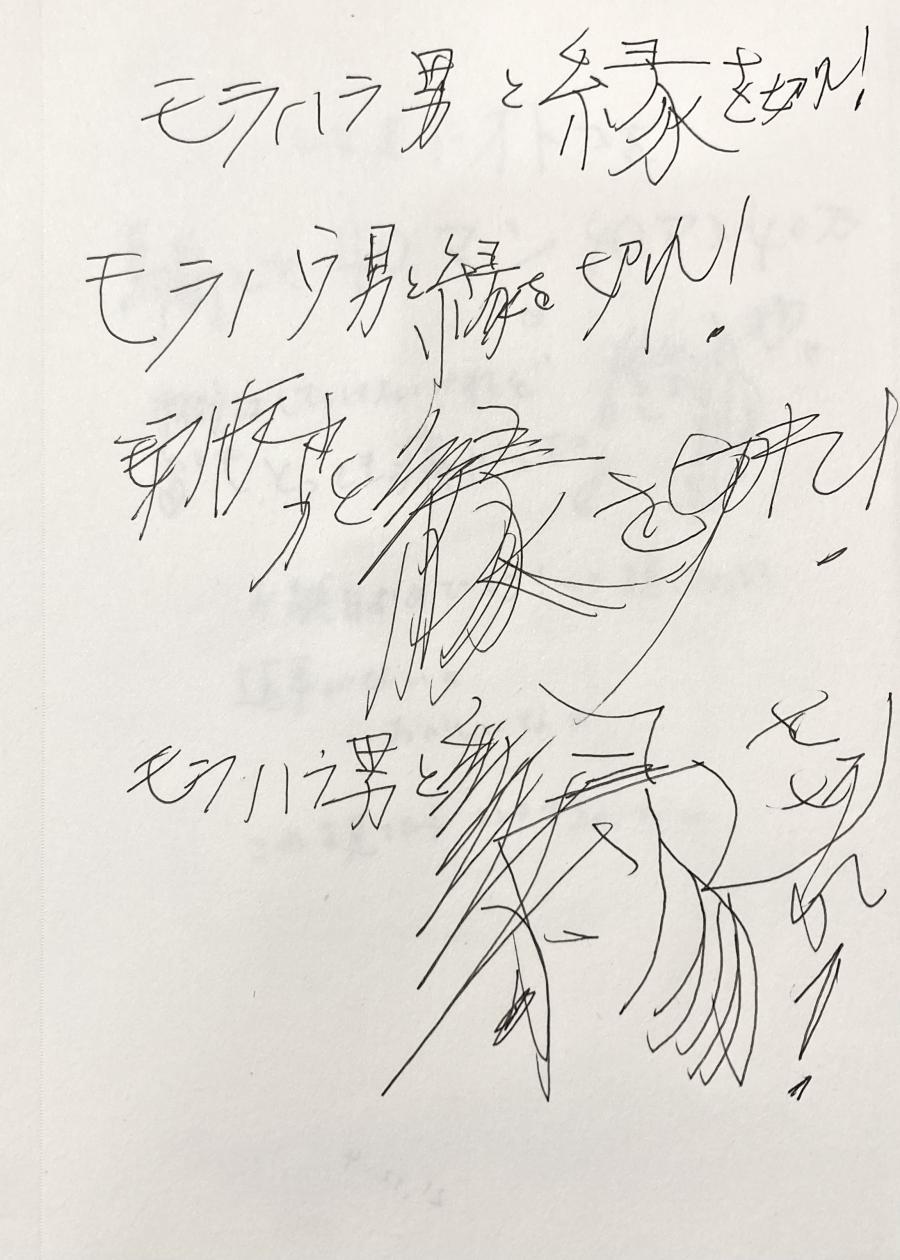 モラハラ男と縁を切れ!
モラハラ男と縁を切れ!
と縁を切れ!
モラハラ男と縁を切れ!